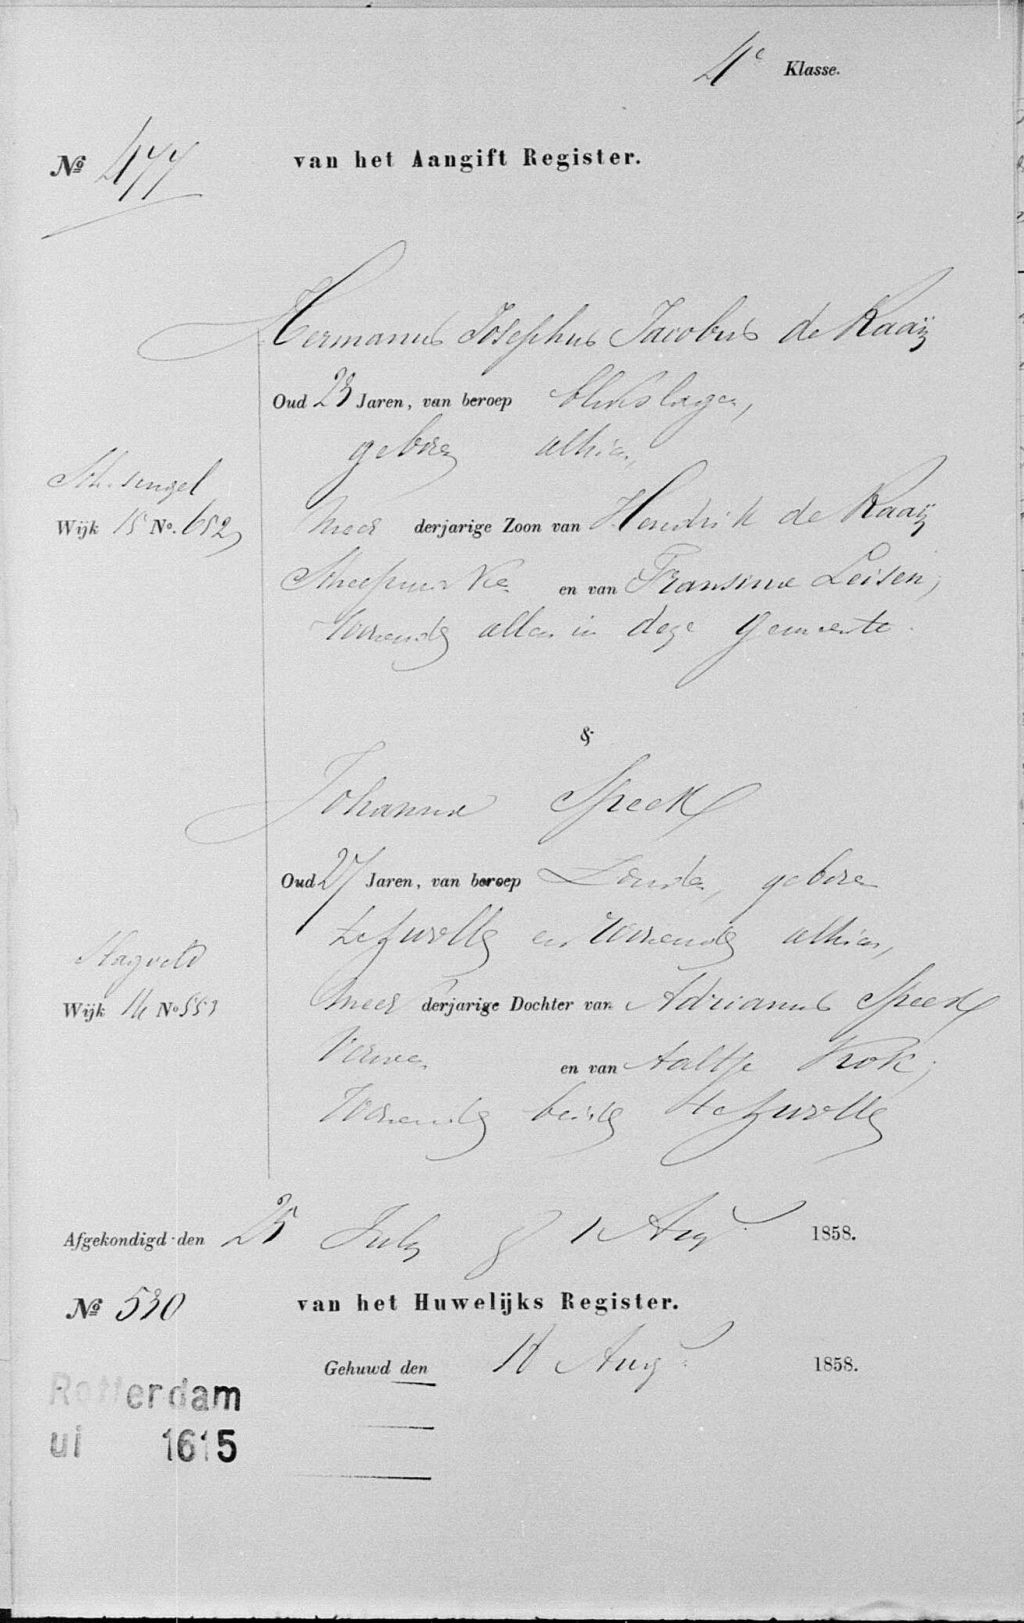 4e Klasse.
No 477 van het Aangift Register.
Hermanus Josephus Jacobus de Raaij
Oud 23 Jaren, van beroep blikslager,
geboren alhier,
Sch. singel
Wijk 15 No. 652, Meer derjarige Zoon van Hendrik de Raaij
en van Fransina Leisen,
Wonende allen in deze Gemeente.
&
Johanna Speek
Oud 27 Jaren, van beroep Zonder, geboren
te Zwolle en Wonende alhier,
Hagveld
Wijk 14 No 551 Meer derjarige Dochter van Adrianus Speek
en van Aaltje Kok,
Wonende beide te Zwolle
Afgekondigd den 25 July & 1 Aug 1858.
No 530 van het Huwelijks Register.
Gehuwd den Aug. 1858.
Rotterdam
ui 1615